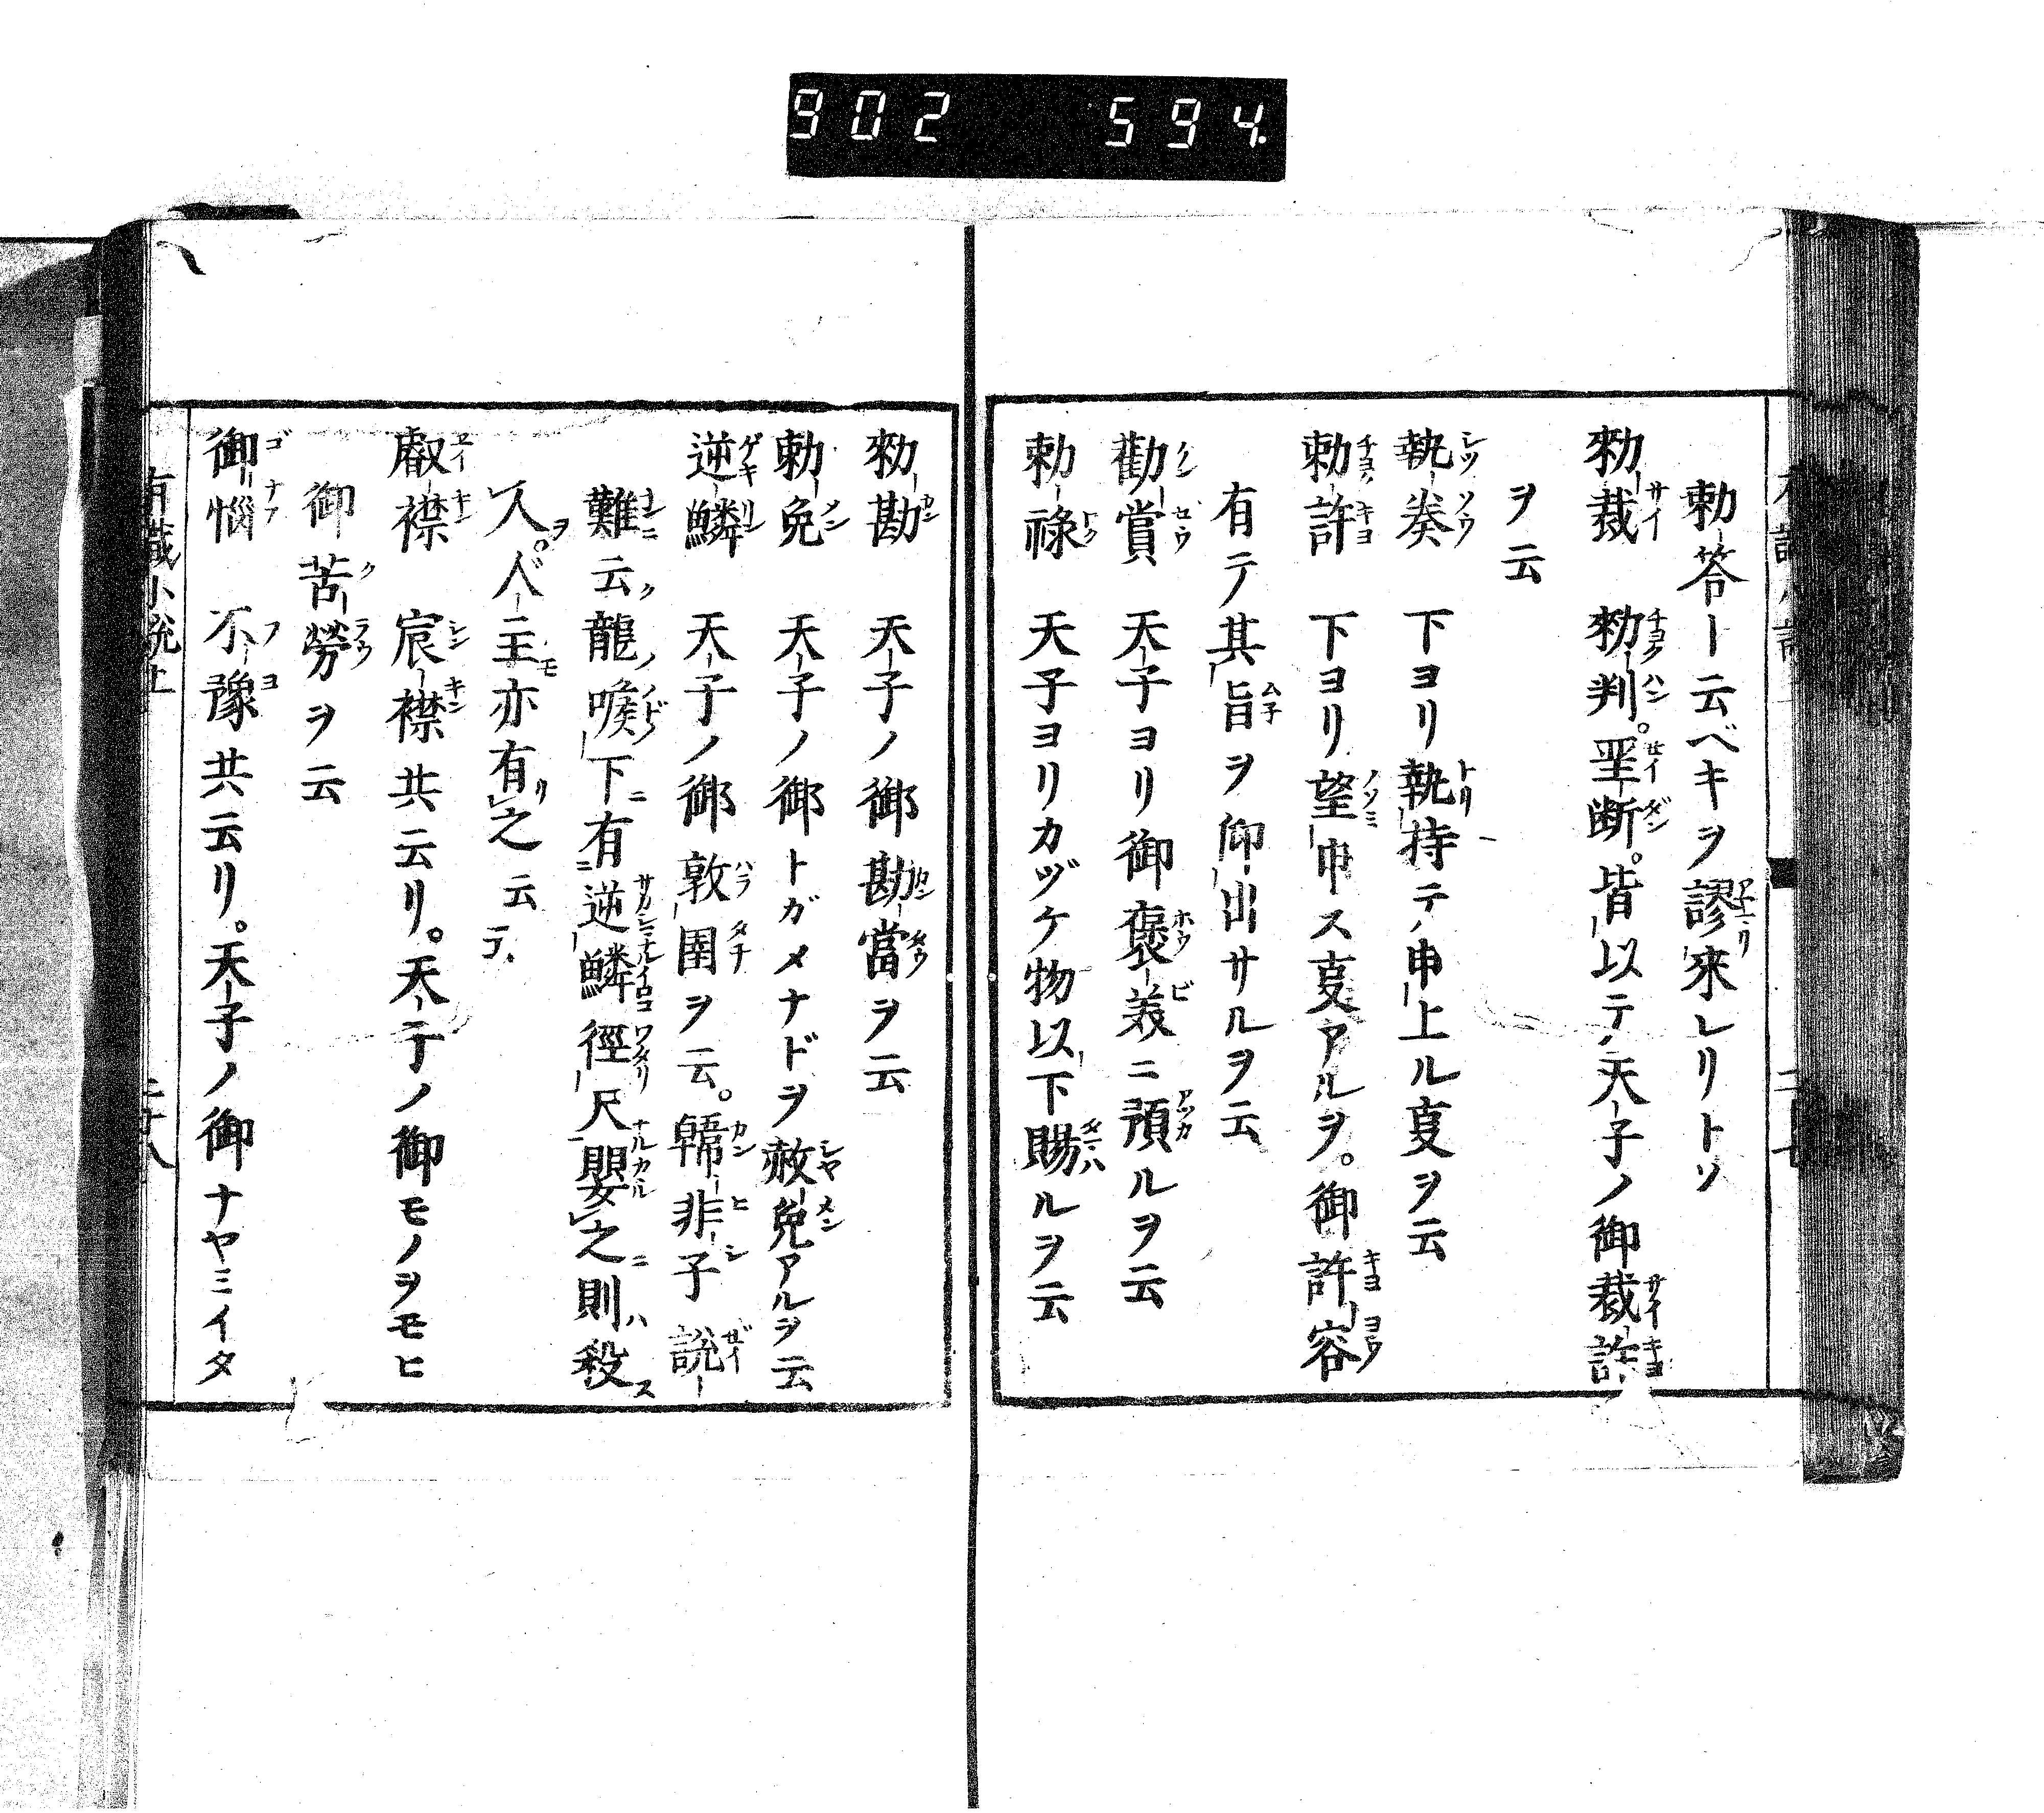 902 594.
勅答ト云ベキヲ謬來レリトソ
勅裁 勅判。聖断。皆以テ天子ノ御裁許
ヲ云
執奏 下ヨリ執持テ申上ル㕝ヲ云
勅許 下ヨリ望申ス㕝アルヲ。御許容
有テ其旨ヲ仰出サルヲ云
勸賞 天子ヨリ御褒美ニ預ルヲ云
勅祿 天子ヨリカヅケ物以下賜ルヲ云
勅勘 天子ノ御勘當ヲ云
勅免 天子ノ御トガメナドヲ赦免アルヲ云
逆鱗 天子ノ御敦圉ヲ云。韓非子説
難云龍喉下有逆鱗徑尺嬰之則殺
人。人主亦有之云云
叡襟 宸襟共云リ。天子ノ御モノヲモヒ
御苦勞ヲ云
御惱 不豫共云リ。天子ノ御ナヤミイタ
有職小説上 二十八